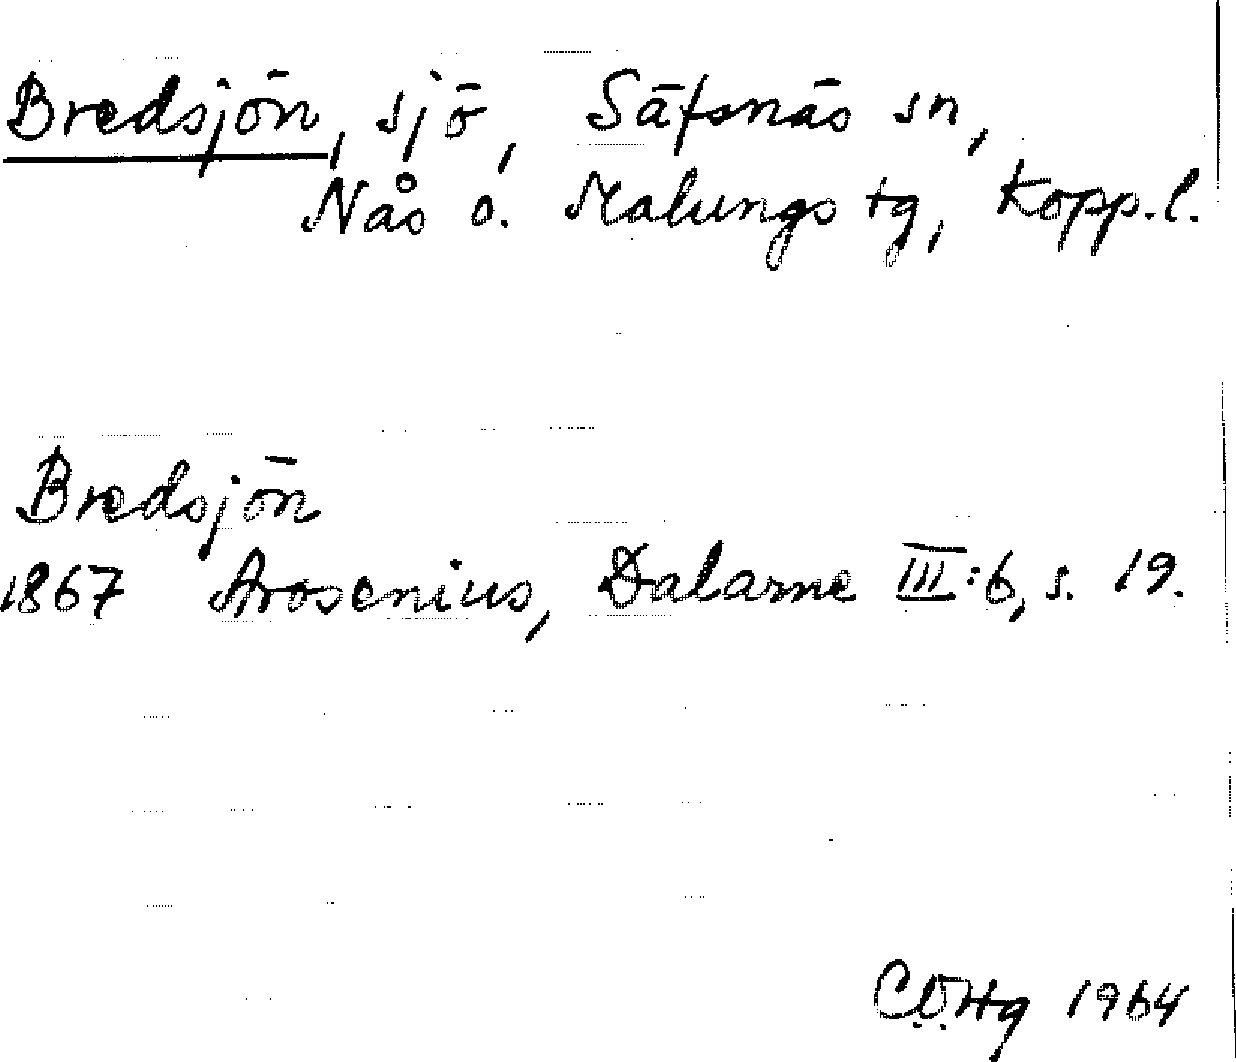 Bredsjön, sjö, Säfsnäs sn,
Nås o. Malungs tg, Kopp.l.
Bredsjön
1867 Arosenius, Dalarne III:6, s. 19.
1964